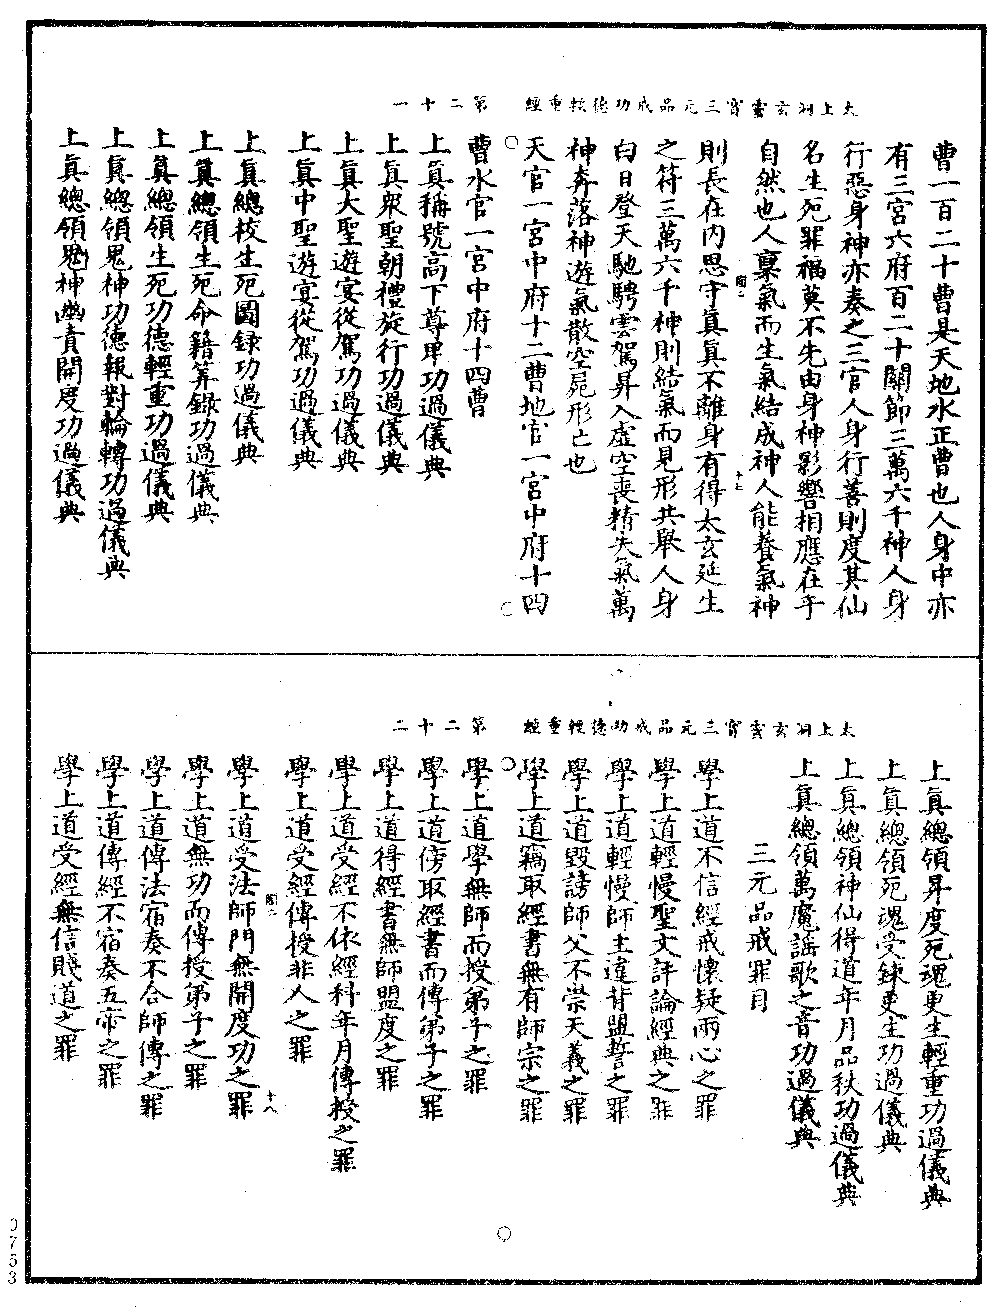 太上洞玄靈寶三元品戒功德輕重經　第二十一
曹一百二十曹是天地水正曹也人身中亦
有三宮六府百二十關節三萬六千神人身
行惡身神亦奏之三官人身行善則度其仙
名生死罪福莫不先由身神影響相應在乎
自然也人稟氣而生氣結成神人能養氣神
則長在內思守真真不離身有得太玄延生
之符三萬六千神則結氣而見形共舉人身
白日登天馳騁雲駕昇入虛空喪精失氣萬
神奔落神遊氣散空屍形亡也
天官一宮中府十二曹地官一宮中府十四
曹水官一宮中府十四曹
上真稱號高下尊卑功過儀典
上真眾聖朝禮旋行功過儀典
上真大聖遊宴從駕功過儀典
上真中聖遊宴從駕功過儀典
上真總校生死圖錄功過儀典
上真總領生死命籍筭錄功過儀典
上真總領生死功德輕重功過儀典
上真總領鬼神功德報對輪轉功過儀典
上真總領鬼神幽責開度功過儀典
太上洞玄靈寶三元品戒功德輕重經　第二十二
上真總領昇度死魂更生輕重功過儀典
上真總領死魂受鍊更生功過儀典
上真總領神仙得道年月品秩功過儀典
上真總領萬魔謠歌之音功過儀典
三元品戒罪目
學上道不信經戒懷疑兩心之罪
學上道輕慢聖文評論經典之罪
學上道輕慢師主違背盟誓之罪
學上道毀謗師父不崇天義之罪
學上道竊取經書無有師宗之罪
學上道學無師而授弟子之罪
學上道傍取經書而傳弟子之罪
學上道得經書無師盟度之罪
學上道受經不依經科年月傳授之罪
學上道受經傳授非人之罪
十八
學上道受法師門無開度功之罪
學上道無功而傳授弟子之罪
學上道傳法宿奏不合師傳之罪
學上道傳經不宿奏五帝之罪
學上道受經無信賤道之罪
0753